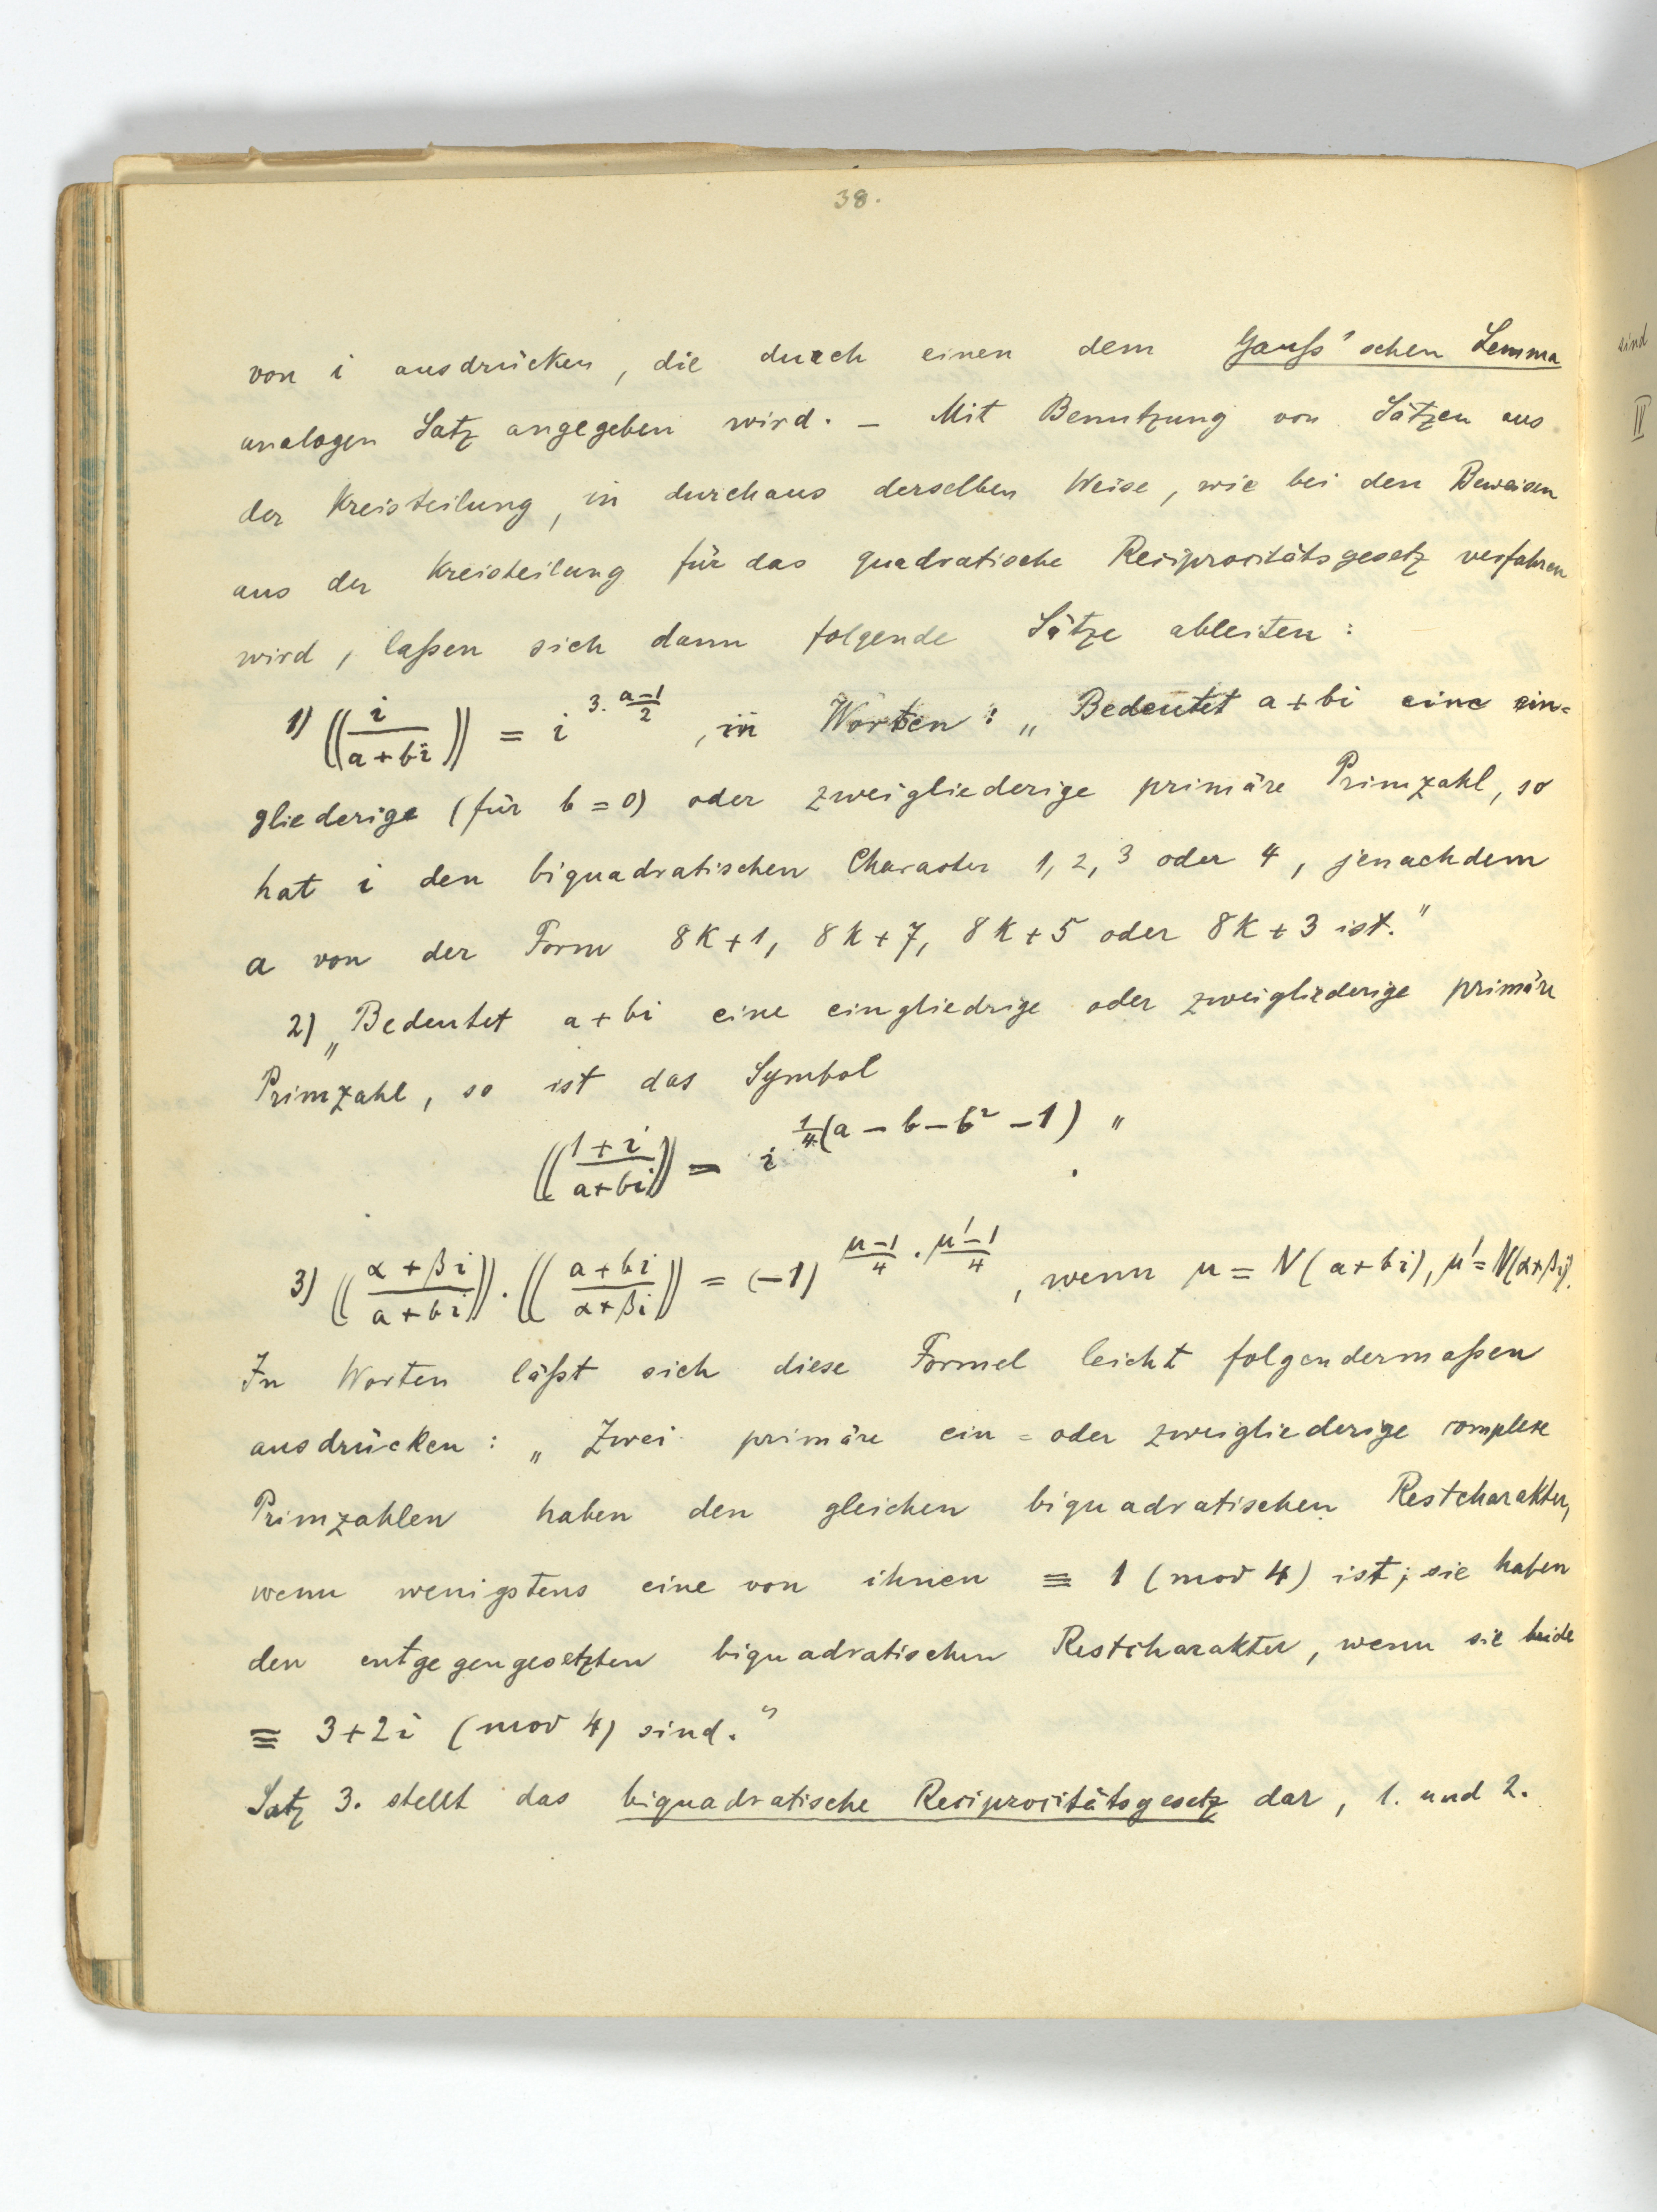 38.
von i ausdrücken, die durch einen dem Gauß'schen Lemma
analogen Satz angegeben wird. – Mit Benutzung von Sätzen aus
der Kreisteilung, in durchaus derselben Weise, wie bei den Beweisen
aus der Kreisteilung für das quadratische Reciprocitätsgesetz verfahren
wird, laßen sich dann folgende Sätze ableiten:
1) ((i/(a+bi))) = i^(3·(a−1)/2), in Worten: „Bedeutet a+bi eine ein=
gliederige (für b=0) oder zweigliederige primäre Primzahl, so
hat i den biquadratischen Character 1, 2, 3 oder 4, jenachdem
a von der Form 8k+1, 8k+7, 8k+5 oder 8k+3 ist."
2) „Bedeutet a+bi eine eingliedrige oder zweigliederige primäre
Primzahl, so ist das Symbol
(((1+i)/(a+bi))) = i^(1/4(a−b−b²−1))".
3) (((α+βi)/(a+bi)))·(((a+bi)/(α+βi))) = (−1)^((μ−1)/4·(μ'−1)/4), wenn μ = N(a+bi), μ'=N(α+βi).
In Worten läßt sich diese Formel leicht folgendermaßen
ausdrücken: „Zwei primäre ein= oder zweigliederige complexe
Primzahlen haben den gleichen biquadratischen Restcharakter,
wenn wenigstens eine von ihnen ≡ 1 (mod 4) ist; sie haben
den entgegengesetzten biquadratischen Restcharakter, wenn sie beide
≡ 3+2i (mod 4) sind."
Satz 3. stellt das biquadratische Reciprocitätsgesetz dar, 1. und 2.
sind
II